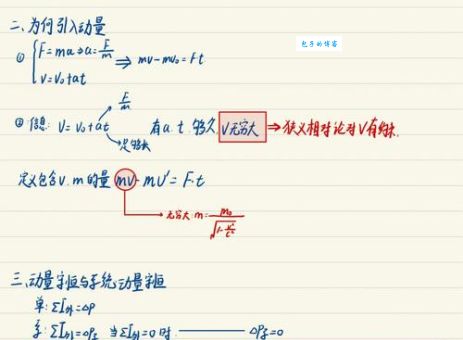 二、为何引入动量
包子的博客
① { F=ma⇒a=F/m
v=v₀+at ⇒ mv-mv₀=Ft
F/m
② 信息: v=v₀+at 有a.t.够久 v无穷大 ⇒狭义相对论对v有约束.
定义包含v.m的量 mv-mv'=F·t
无穷大:m=m₀/√(1-v²/c²)
三、动量守恒与系统动量守恒
单:ΣI外=△P
系:ΣI外=△P系 当ΣI外=0时 ——— △P系=0